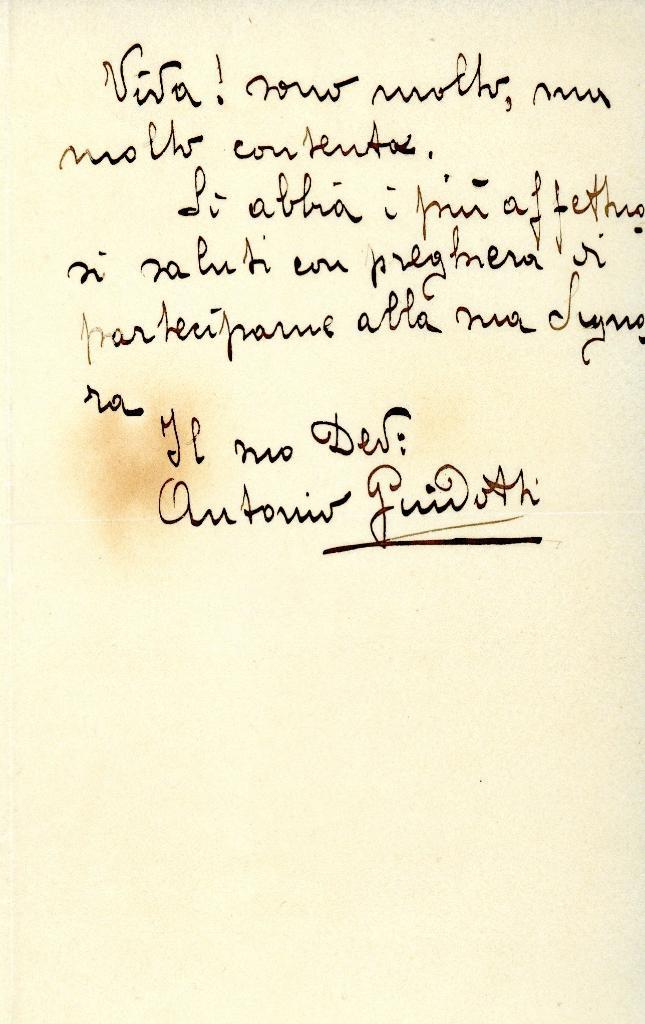 Viva! sono molto, ma
molto contento.
Si abbia i più affettuo
si saluti con preghiera di
parteciparne alla sua Signo
ra
Il suo Dev:
Antonio Guidotti